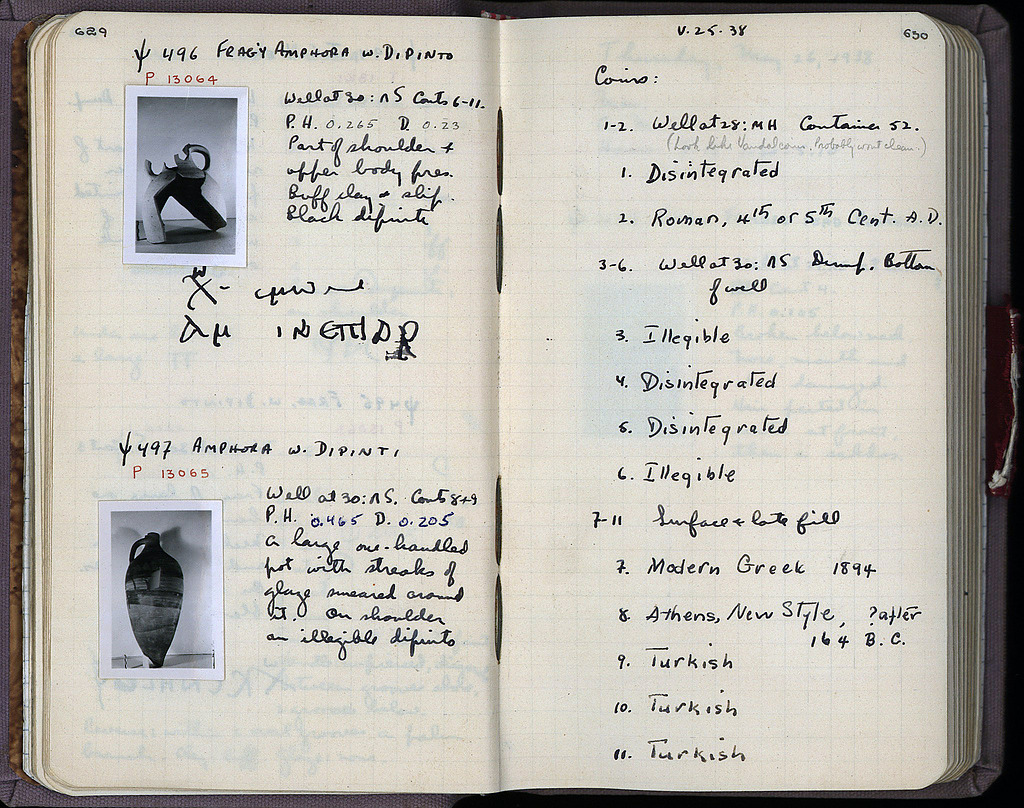 629
Ψ 496 FRAG'Y AMPHORA W. DIPINTO
P 13064
Well at 30: ΛS Conts 6-11.
P.H. 0.265 D. 0.23
Part of shoulder +
upper body pres.
Buff clay + slip.
Black dipinto
Ψ 497 AMPHORA W. DIPINTI
P 13065
Well at 30: ΛS. Conts 8+9
P.H. 0.465 D. 0.205
A large one-handled
pot with streaks of
glaze smeared around
it. On shoulder
an illegible dipinto
V.25.38
630
Coins:
1-2. Well at 28: MH Container 52.
(Look like Vandal coins. Probably won't clean.)
1. Disintegrated
2. Roman, 4th or 5th Cent. A.D.
3-6. Well at 30: ΛS Dump. Bottom
of well
3. Illegible
4. Disintegrated
5. Disintegrated
6. Illegible
7-11 Surface + late fill
7. Modern Greek 1894
8. Athens, New Style, ?after
164 B.C.
9. Turkish
10. Turkish
11. Turkish